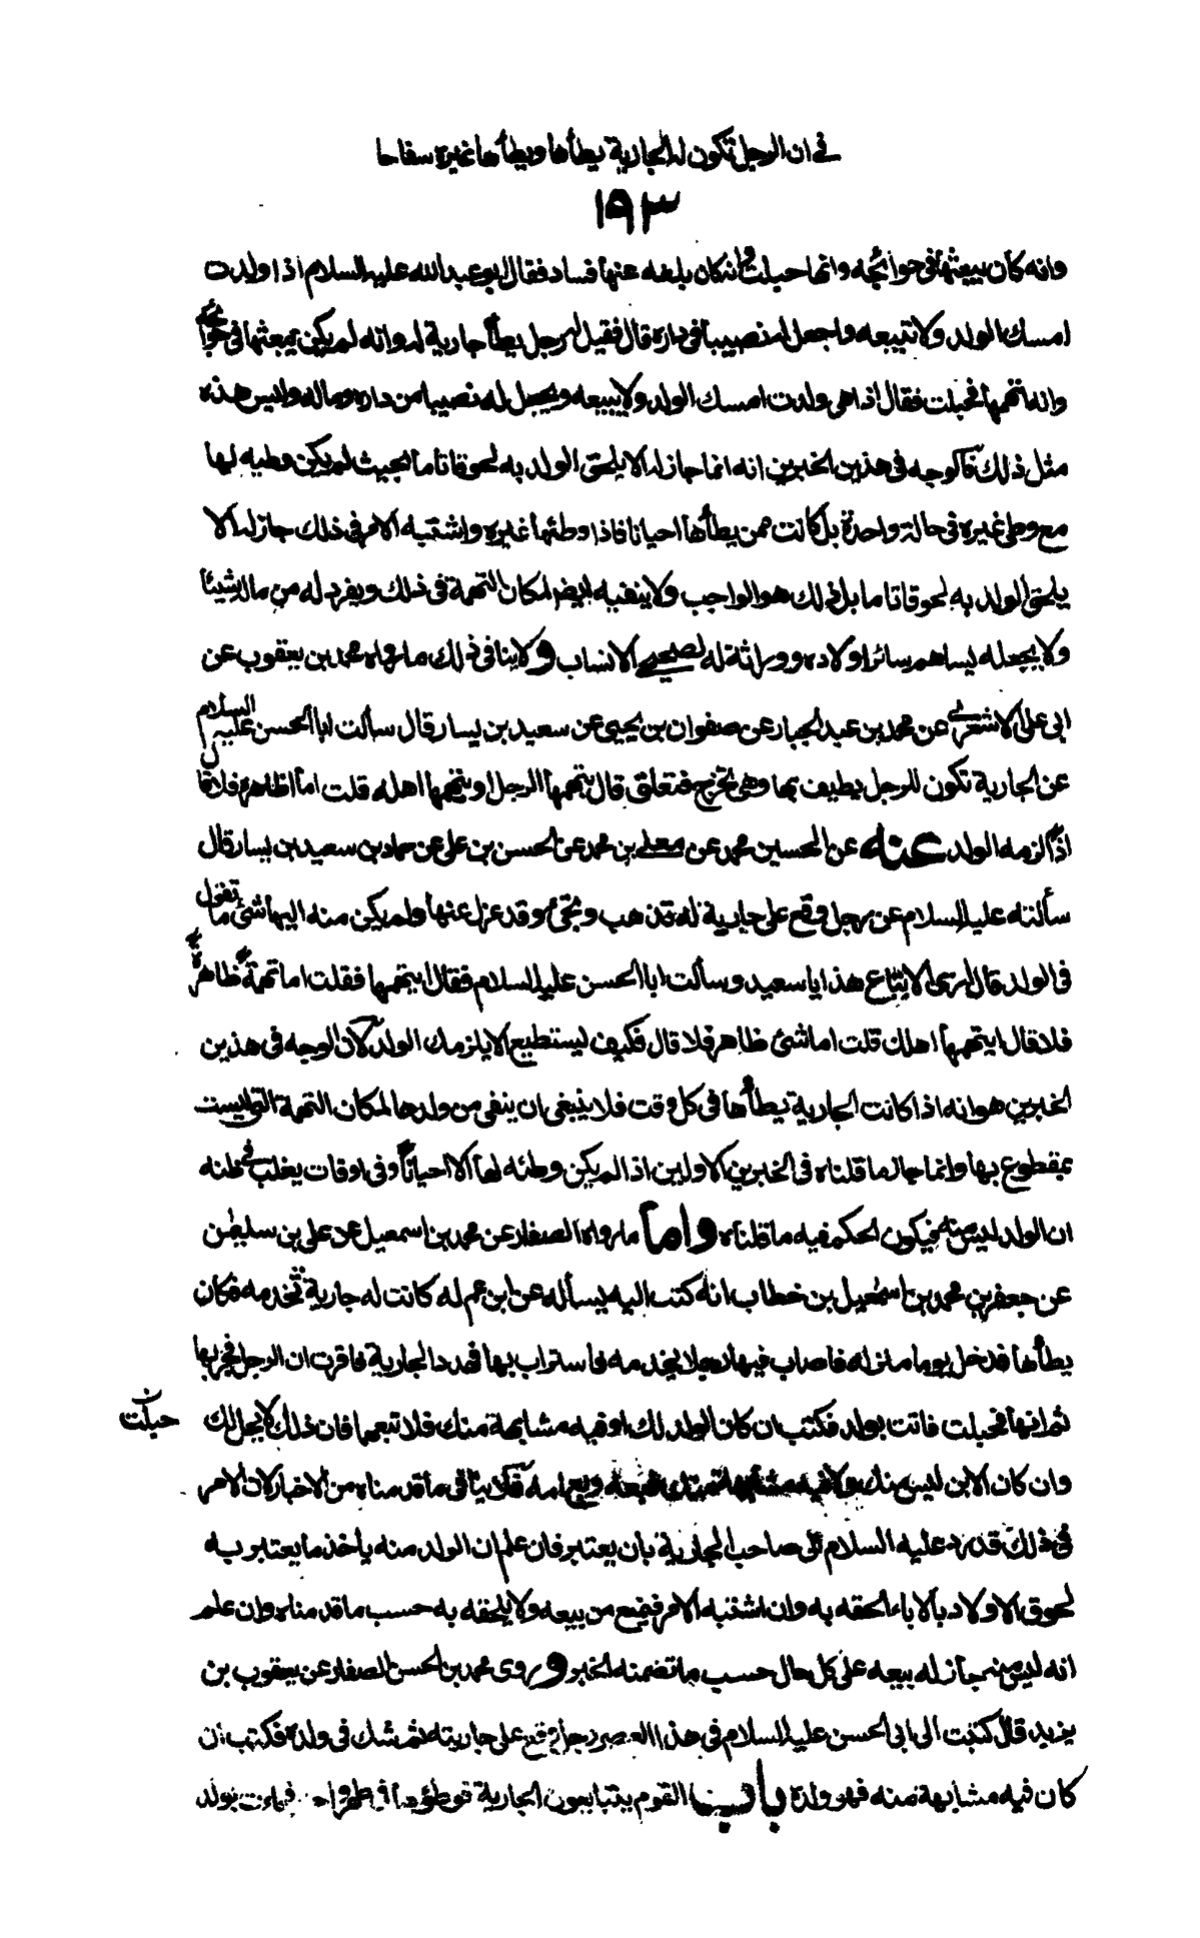 في ان الرجل تكون له الجارية يطأها ويطأها غيره سفاحا
١٩٣
وانه كان يبعثها في حوائجه وانها حبلت وانه كان بلغه عنها فساد فقال ابو عبد الله عليه السلام اذا ولدت
امسك الولد ولا تبيعه واجعل له نصيبا في داره قال فقيل له رجل يطأ جارية له وانه لم يكن يبعثها في حوائجه
وانه اتهمها فحبلت فقال اذا هي ولدت امسك الولد ولا يبيعه ويجعل له نصيبا من داره وماله وليس هذه
مثل ذلك فالوجه في هذين الخبرين انه انما جاز له الا يلحق الولد به لحوقا تاما بحيث لم يكن وطيه لها
مع وطي غيره في حالة واحدة بل كانت ممن يطأها احيانا فاذا وطئها غيره واشتبه الامر في ذلك جاز له الا
يلحق الولد به لحوقا تاما بل ذلك هو الواجب ولا ينفيه ايضا لمكان التهمة في ذلك ويفرد له من ماله شيئا
ولا يجعله يساهم سائر اولاده ووراثة له لصحيحي الانساب ولا ينافي ذلك ما رواه محمد بن يعقوب عن
ابي علي الاشعري عن محمد بن عبد الجبار عن صفوان بن يحيى عن سعيد بن يسار قال سألت ابا الحسن عليه السلام
عن الجارية تكون للرجل يطيف بها وهي تخرج فتعلق قال يتهمها الرجل او يتهمها اهله قلت اما ظاهرة فلا قال
اذا لزمه الولد عنه عن الحسين محمد عن معلى بن محمد عن الحسن بن علي عن حماد بن سعيد بن يسار قال
سألته عليه السلام عن رجل وقع على جارية له تذهب وتجئ وقد عزل عنها ولم يكن منه اليها شئ ما تقول
في الولد قال ارى الا يباع هذا يا سعيد وسألت ابا الحسن عليه السلام فقال ايتهمها فقلت اما تهمة ظاهرة
فلا قال ايتهمها اهلك قلت اما شئ ظاهر فلا قال فكيف تستطيع الا يلزمك الولد لان الوجه في هذين
الخبرين هو انه اذا كانت الجارية يطأها في كل وقت فلا ينبغي ان ينفي من ولدها لمكان التهمة التي ليست
بمقطوع بها وانما جاز ما قلناه في الخبرين الاولين اذا لم يكن وطئه لها الا احيانا وفي اوقات يغلب في ظنه
ان الولد ليس منه فيكون الحكم فيه ما قلناه واما ما رواه الصفار عن محمد بن اسمعيل عن علي بن سليمن
عن جعفر بن محمد بن اسمعيل بن خطاب انه كتب اليه يسأله عن ابن عم له كانت له جارية تخدمه فكان
يطأها فدخل يوما منزله فاصاب فيها رجلا يخدمه فاستراب بها فهدد الجارية فاقرت ان الرجل فجر بها
ثم انها فحبلت فاتت بولد فكتب ان كان الولد لك او فيه مشابهة منك فلا تبعهما فان ذلك لا يحل لك
حبلت ن
وان كان الابن ليس منك ولا فيه مشابهة منك فبعه وبع امه فلا ينافي ما قدمناه من الاخبار لان الامر
في ذلك قد رد عليه السلام الى صاحب الجارية بان يعتبر فان علم ان الولد منه يأخذ ما يعتبر به
لحوق الاولاد بالاباء الحقه به وان اشتبه الامر فيمتنع من بيعه ولا يلحقه به حسب ما قدمناه وان علم
انه ليس منه جاز له بيعه على كل حال حسب ما تضمنه الخبر وروى محمد بن الحسن الصفار عن يعقوب بن
يزيد قال كتبت الى ابي الحسن عليه السلام في هذا العصر رجل وقع على جاريته ثم شك في ولده فكتب ان
كان فيه مشابهة منه فهو ولده باب القوم يتبايعون الجارية فوطؤوها في طهر واحد فجاءت بولد